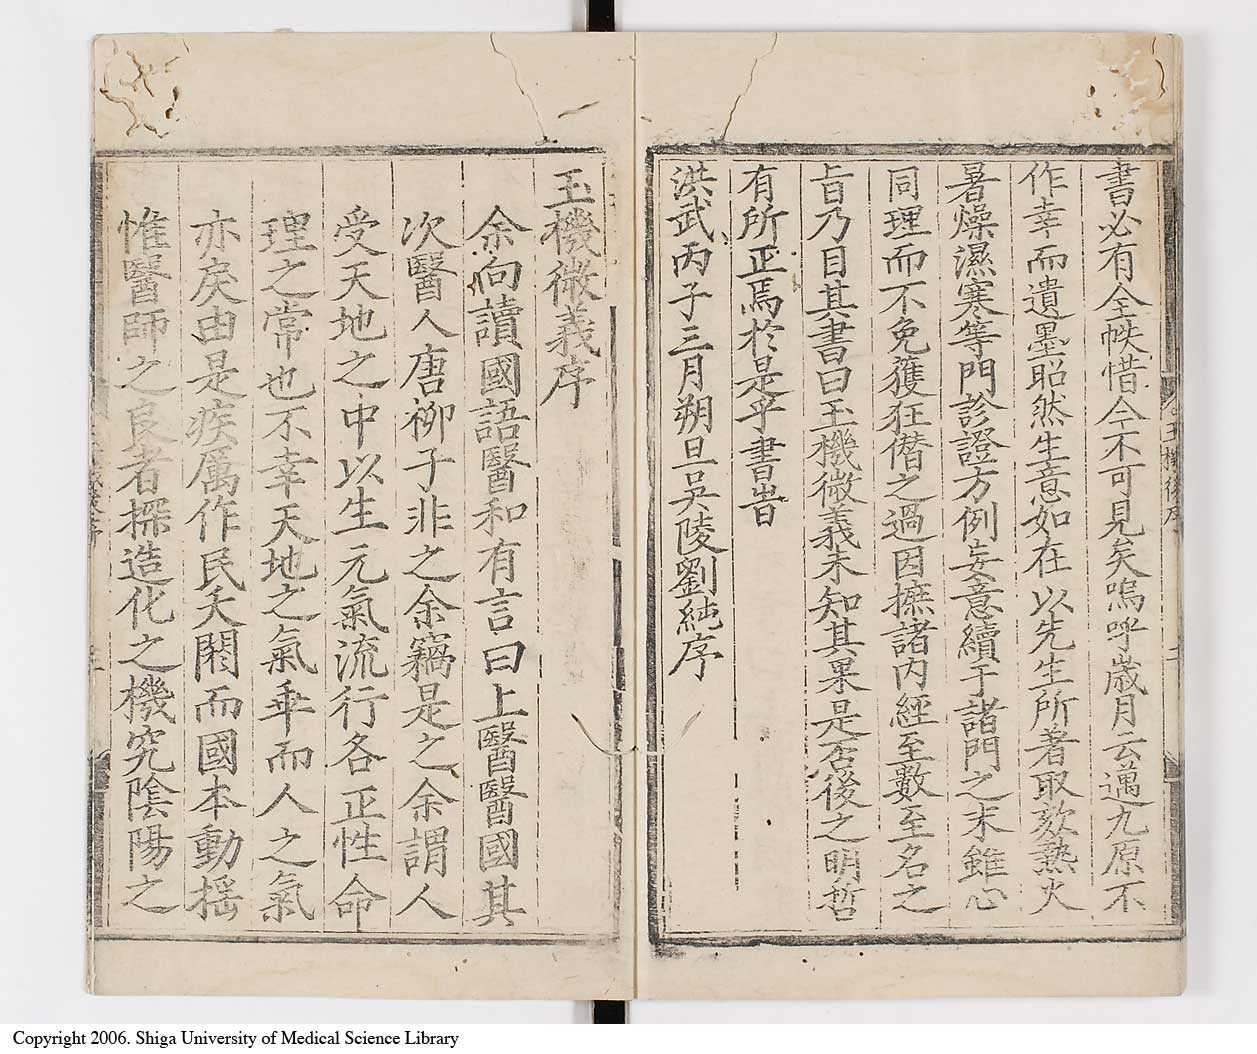 書必有全帙惜今不可見矣嗚呼歲月云邁九原不
作幸而遺墨昭然生意如在以先生所著取欬熱火
暑燥濕寒等門診證方例妄意續于諸門之末雖心
同理而不免獲狂僭之過因摭諸內經至數至名之
旨乃目其書曰玉機微義未知其果是否後之明哲
有所正焉於是乎書旹
洪武丙子三月朔旦吳陵劉純序
玉機微義序
余向讀國語醫和有言曰上醫醫國其
次醫人唐柳子非之余竊是之余謂人
受天地之中以生元氣流行各正性命
理之常也不幸天地之氣乖而人之氣
亦戾由是疾厲作民夭閼而國本動揺
惟醫師之良者探造化之機究陰陽之
Copyright 2006. Shiga University of Medical Science Library